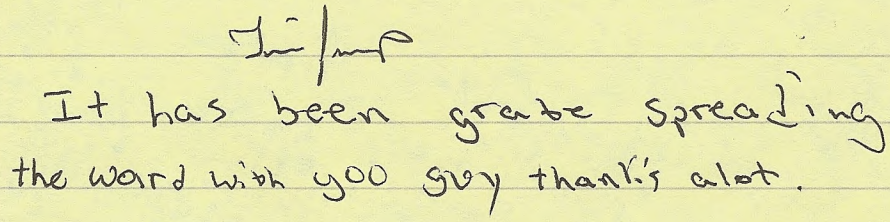 It has been grate spreading
the word with yoo guy thank's alot.